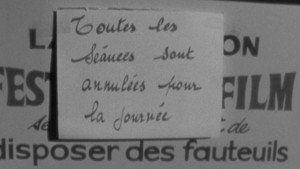 LA ON
Toutes les
séances sont
annulées pour
la journée
FEST FILM
se de
disposer des fauteuils